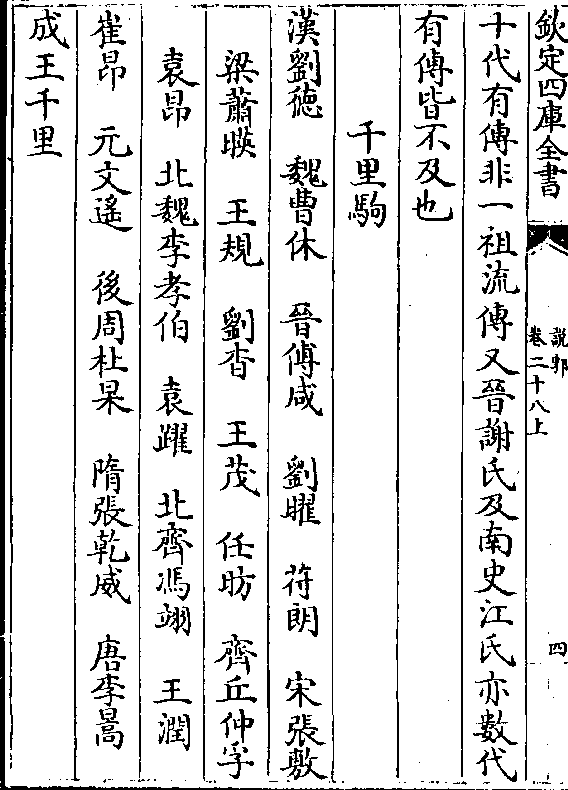 欽定四庫全書
說郛
卷二十八上
四
十代有傳非一祖流傳又晉謝氏及南史江氏亦數代
有傳皆不及也
千里駒
漢劉德 魏曹休 晉傅咸 劉曜 苻朗 宋張敷
梁蕭暎 王規 劉杳 王茂 任昉 齊丘仲孚
袁昂 北魏李孝伯 袁躍 北齊馮翊 王潤
崔昂 元文遙 後周杜杲 隋張乾威 唐李暠
成王千里